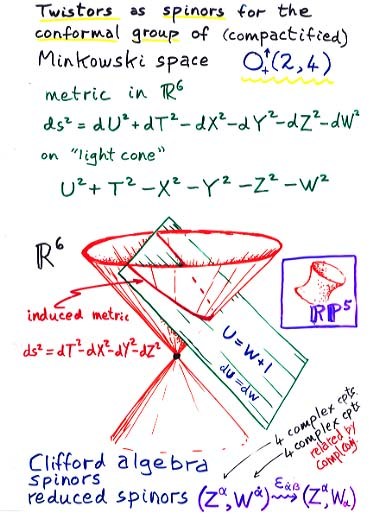 Twistors as spinors for the
conformal group of (compactified)
Minkowski space O₊↑(2,4)
metric in ℝ⁶
ds² = dU² + dT² − dX² − dY² − dZ² − dW²
on "light cone"
U² + T² − X² − Y² − Z² − W²
ℝ⁶
induced metric
ds² = dT² − dX² − dY² − dZ²
U = W + 1
dU = dW
ℝP⁵
4 complex cpts.
4 complex cpts
related by
Clifford algebra
spinors
reduced spinors (Z^α, W^α̇) ⇝ (Z^α, W_α)